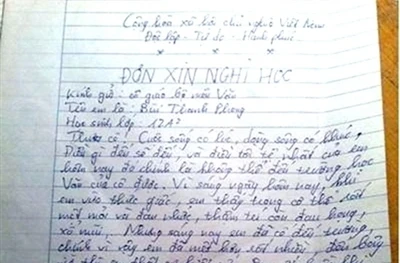 Cộng hòa xã hội chủ nghĩa Việt Nam
Độc lập - Tự do - Hạnh phúc
x x x
ĐƠN XIN NGHỈ HỌC
Kính gửi: cô giáo bộ môn Văn
Tên em là: Bùi Thanh Phong
Học sinh lớp: 12A2
Thưa cô! Cuộc sống có lúc, dòng sông có khúc,
Điều gì đến sẽ đến, và điều tồi tệ nhất của em
hôm nay đó chính là không thể đến trường học
Văn của cô được. Vì sáng ngày hôm nay, khi
em vừa thức giấc, em thấy trong cơ thể rất
mệt mỏi và đau nhức, thậm trí còn đau họng,
xổ mũi... Nhưng sáng nay em đã cố đến trường,
chính vì vậy em đã mệt hơn rất nhiều, đến